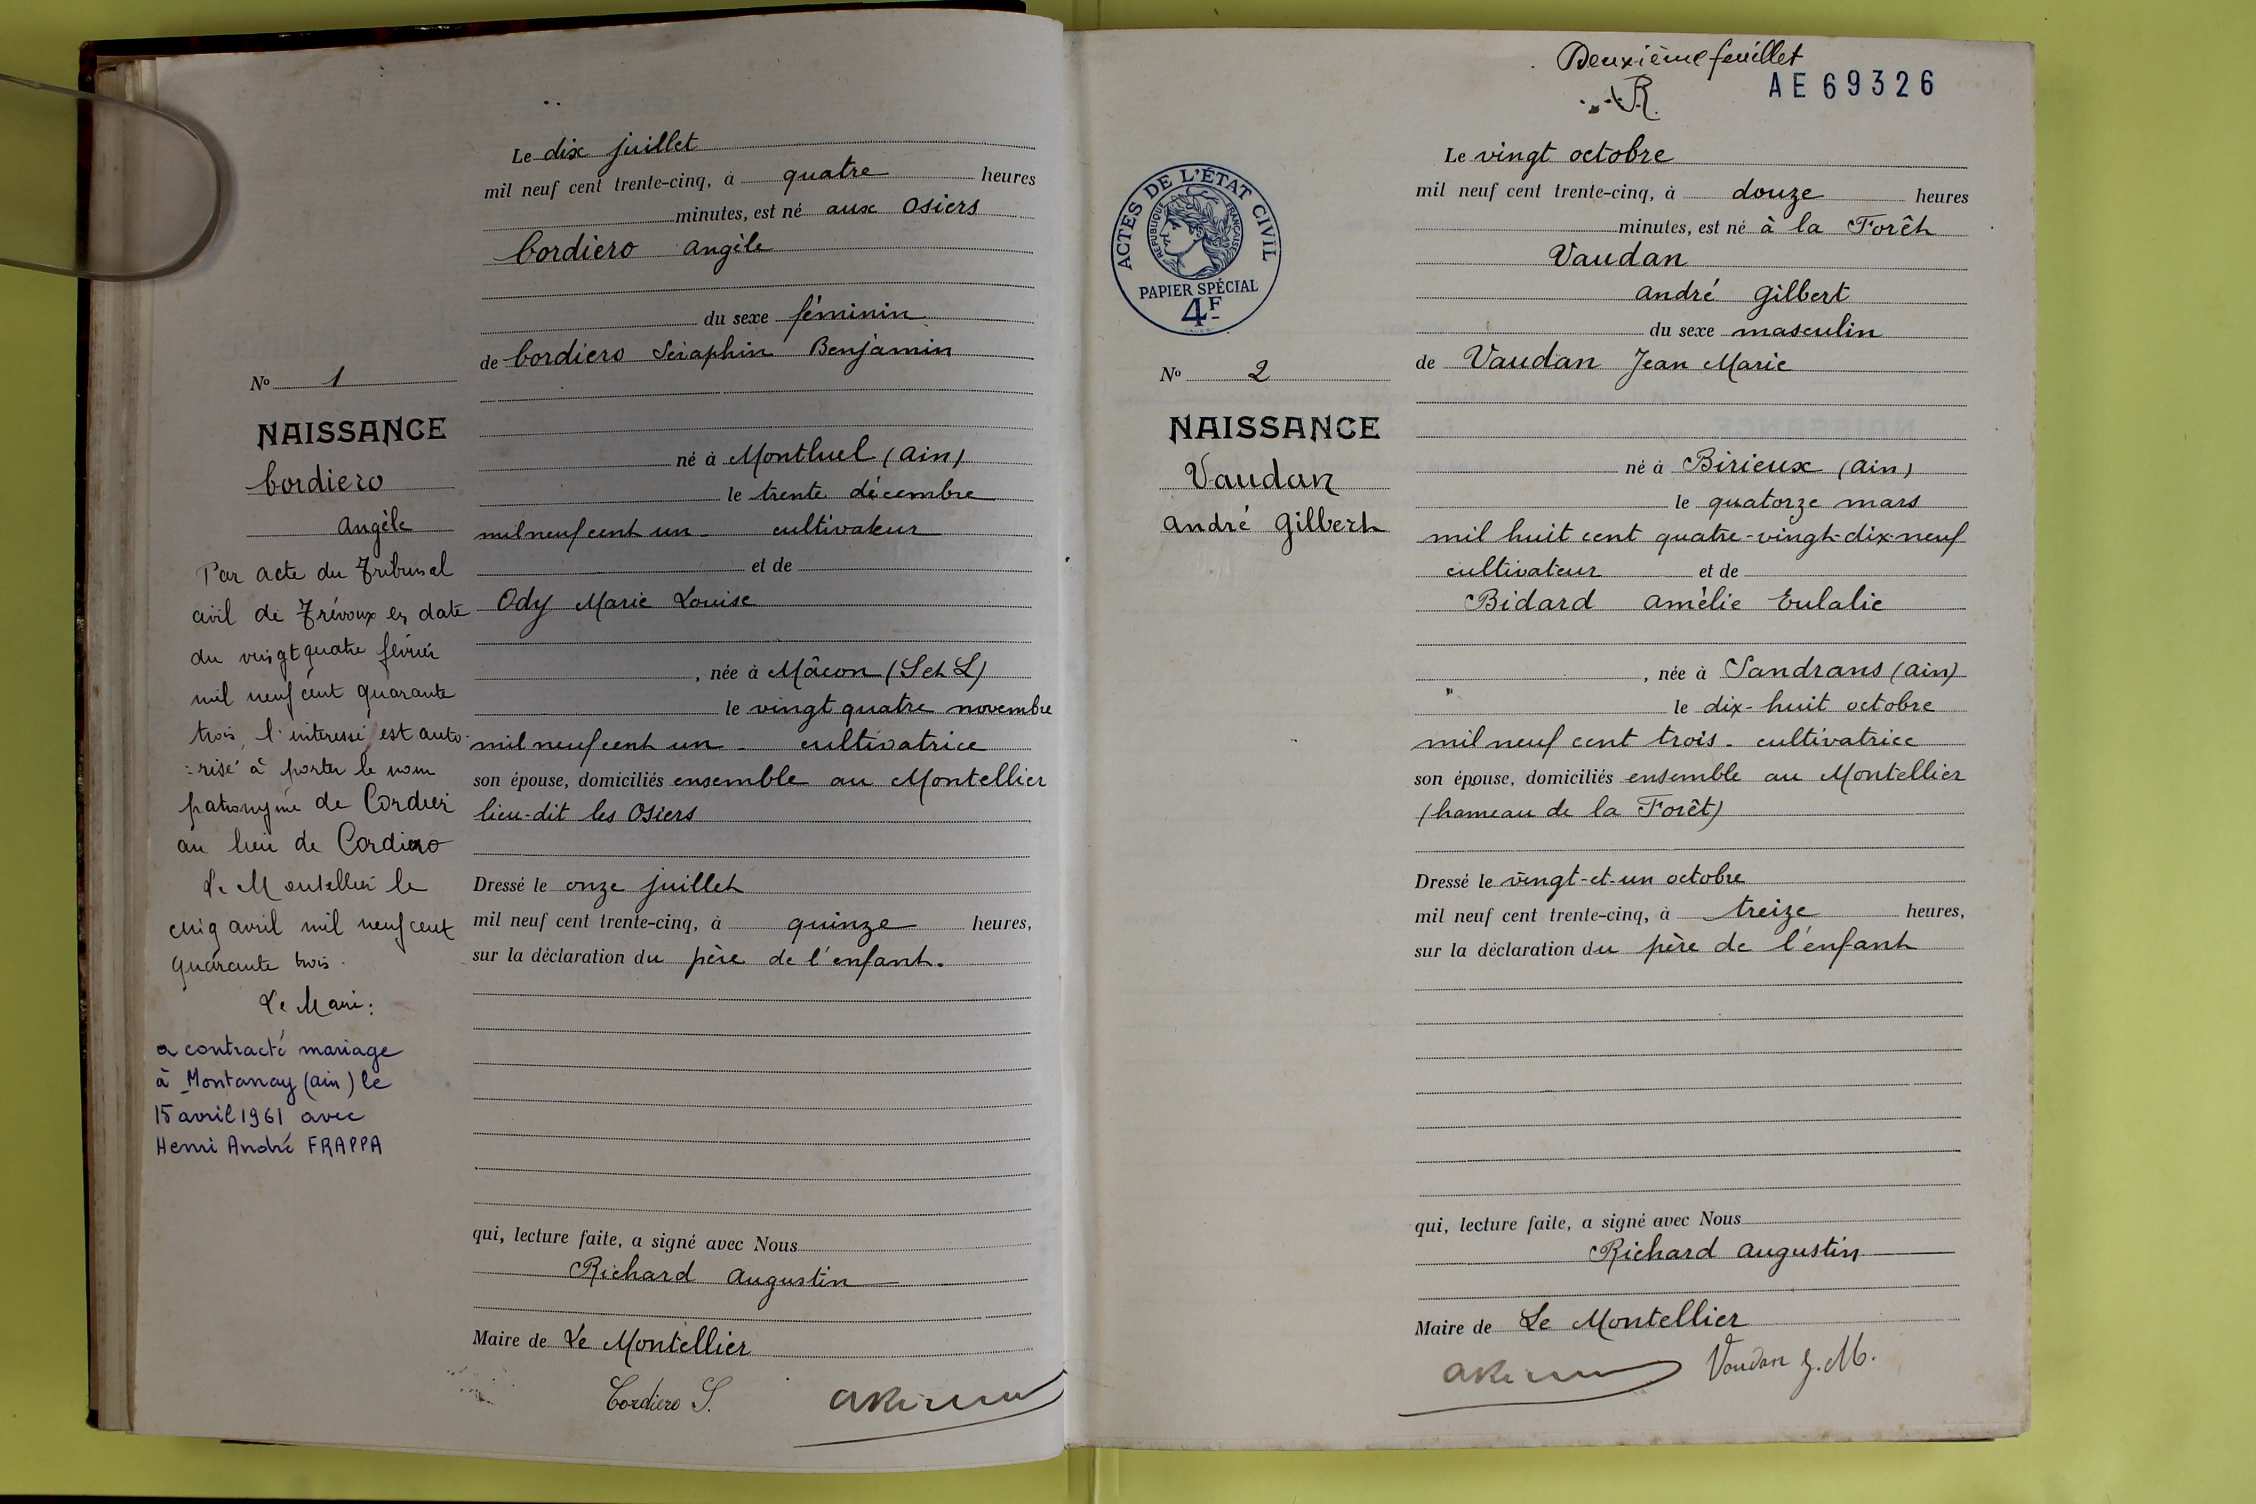 Le dix juillet
mil neuf cent trente-cinq, à quatre heures
minutes, est né aux Osiers
Cordiero Angèle
du sexe féminin
de Cordiero Séraphin Benjamin
né à Montluel (Ain)
le trente décembre
mil neuf cent un - cultivateur
et de
Ody Marie Louise
, née à Mâcon (S et L)
le vingt quatre novembre
mil neuf cent un - cultivatrice
son épouse, domiciliés ensemble au Montellier
lieu-dit les Osiers
Dressé le onze juillet
mil neuf cent trente-cinq, à quinze heures,
sur la déclaration du père de l'enfant.
qui, lecture faite, a signé avec Nous
Richard Augustin
Maire de Le Montellier
Cordiero S.
No 1
NAISSANCE
Cordiero
Angèle
Par acte du Tribunal
civil de Trévoux en date
du vingt quatre février
mil neuf cent quarante
trois, l'interessé est auto-
=risé à porter le nom
patronyme de Cordier
au lieu de Cordiero
Le Montellier le
cinq avril mil neuf cent
quarante trois.
Le Maire:
a contracté mariage
à Montanay (Ain) le
15 avril 1961 avec
Henri André FRAPPA
Deuxième feuillet
AE 69326
ACTES DE L'ÉTAT CIVIL
RÉPUBLIQUE FRANÇAISE
PAPIER SPÉCIAL
4F
No 2
NAISSANCE
Vaudan
André Gilbert
Le vingt octobre
mil neuf cent trente-cinq, à douze heures
minutes, est né à la Forêt
Vaudan
André Gilbert
du sexe masculin
de Vaudan Jean Marie
né à Birieux (Ain)
le quatorze mars
mil huit cent quatre-vingt-dix-neuf
cultivateur et de
Bidard Amélie Eulalie
, née à Sandrans (Ain)
le dix-huit octobre
mil neuf cent trois - cultivatrice
son épouse, domiciliés ensemble au Montellier
(hameau de la Forêt)
Dressé le vingt-et-un octobre
mil neuf cent trente-cinq, à treize heures,
sur la déclaration du père de l'enfant
qui, lecture faite, a signé avec Nous
Richard Augustin
Maire de Le Montellier
Vaudan J.M.